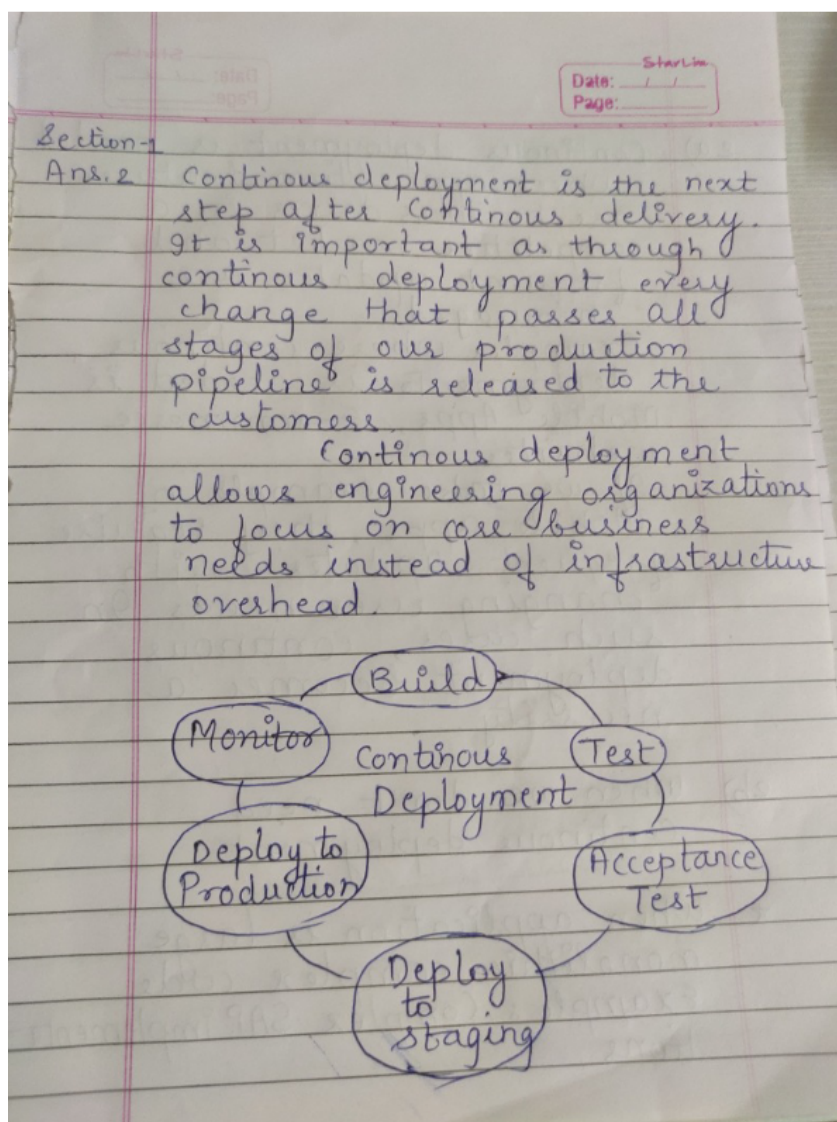 StarLine
Date: / /
Page:
Section-1
Ans.2 Continous deployment is the next
step after continous delivery.
It is important as through
continous deployment every
change that passes all
stages of our production
pipeline is released to the
customers.
Continous deployment
allows engineering organizations
to focus on core business
needs instead of infrastructure
overhead.
Build
Monitor
Continous
Deployment
Test
Deploy to
Production
Acceptance
Test
Deploy
to
staging